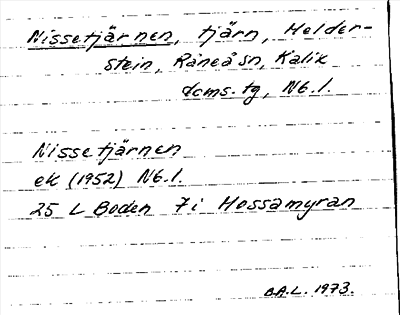 Nissetjärnen, tjärn, Helder-
stein, Råneå sn, Kalix
dcms.tg, Nb.l.
Nissetjärnen
ek (1952) Nb.l.
25 L Boden 7i Hossamyran
B.A.L. 1973.